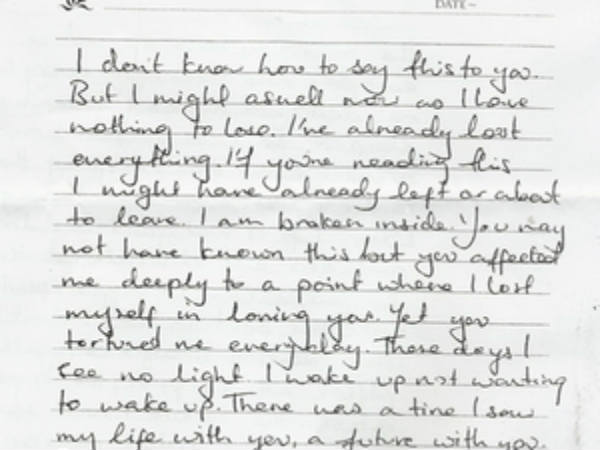 DATE-
I don't know how to say this to you.
But I might aswell now as I have
nothing to lose. I've already lost
everything. If you're reading this
I might have already left or about
to leave. I am broken inside. You may
not have known this but you affected
me deeply to a point where I lost
myself in loving you. Yet you
tortured me everyday. These days I
see no light. I wake up not wanting
to wake up. There was a time I saw
my life with you, a future with you.